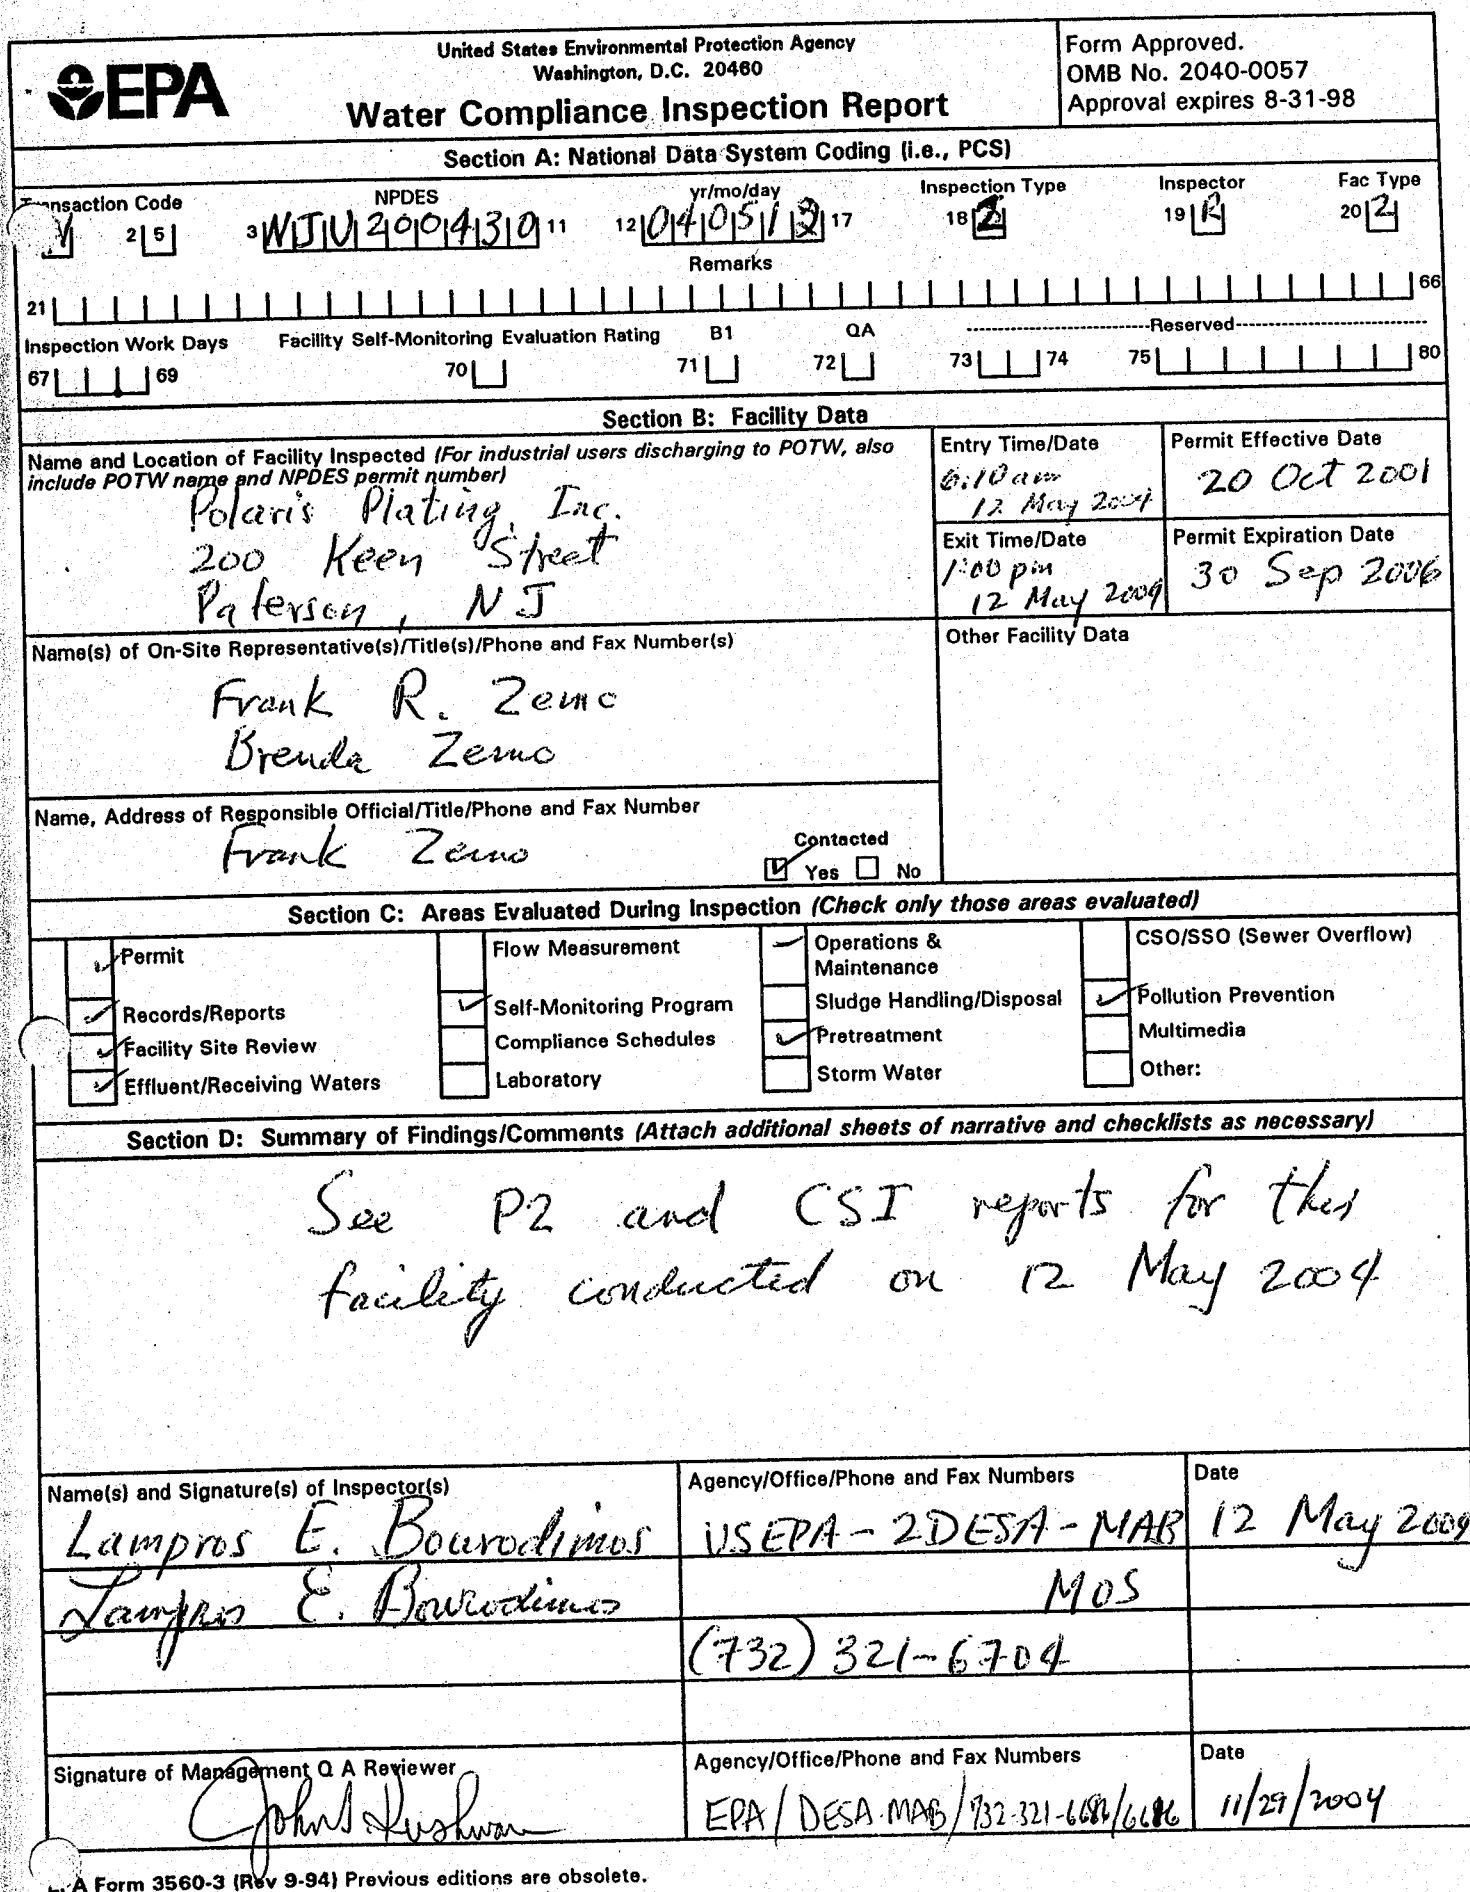 EPA
United States Environmental Protection Agency
Washington, D.C. 20460
Water Compliance Inspection Report
Form Approved.
OMB No. 2040-0057
Approval expires 8-31-98
Section A: National Data System Coding (i.e., PCS)
Transaction Code NPDES yr/mo/day Inspection Type Inspector Fac Type
2 5 3 NJU200430 11 12 040512 17 18 19 R 20 2
Remarks
21 66
Inspection Work Days Facility Self-Monitoring Evaluation Rating B1 QA Reserved
67 69 70 71 72 73 74 75 80
Section B: Facility Data
Name and Location of Facility Inspected (For industrial users discharging to POTW, also
include POTW name and NPDES permit number)
Polaris Plating, Inc.
200 Keen Street
Paterson, NJ
Entry Time/Date
6:10 am
12 May 2004
Permit Effective Date
20 Oct 2001
Exit Time/Date
1:00 pm
12 May 2004
Permit Expiration Date
30 Sep 2006
Name(s) of On-Site Representative(s)/Title(s)/Phone and Fax Number(s)
Frank R. Zemo
Brenda Zemo
Other Facility Data
Name, Address of Responsible Official/Title/Phone and Fax Number
Frank Zemo
Contacted
Yes No
Section C: Areas Evaluated During Inspection (Check only those areas evaluated)
Permit
Records/Reports
Facility Site Review
Effluent/Receiving Waters
Flow Measurement
Self-Monitoring Program
Compliance Schedules
Laboratory
Operations &
Maintenance
Sludge Handling/Disposal
Pretreatment
Storm Water
CSO/SSO (Sewer Overflow)
Pollution Prevention
Multimedia
Other:
Section D: Summary of Findings/Comments (Attach additional sheets of narrative and checklists as necessary)
See P2 and CSI reports for this
facility conducted on 12 May 2004
Name(s) and Signature(s) of Inspector(s)
Lampros E. Bourodimos
Lampros E. Bourodimos
Agency/Office/Phone and Fax Numbers
USEPA-2DESA-MAB
MOS
(732) 321-6704
Date
12 May 2004
Signature of Management Q A Reviewer
Agency/Office/Phone and Fax Numbers
EPA/DESA-MAB/732-321-6686/6616
Date
11/29/2004
EPA Form 3560-3 (Rev 9-94) Previous editions are obsolete.